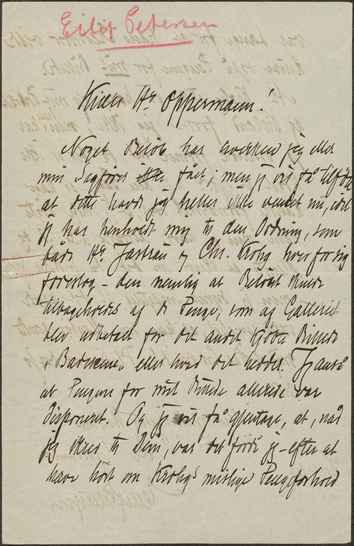 Eilif Petersen
Kiære Hr. Oppermann!
Noget Beløb har hverken jeg eller
min Sagfører fået; men jeg vil få tilføie
at dette havde jeg heller ikke ventet nu, idet
jeg har henholdt mig til den Ordning, som
både Hr. Jastrau og Chr. Krohg hver for sig
foreslog – den nemlig at Beløbet kunde
tilbageholdes af de Penge, som af Galleriet
blev udbetalt for det andet kjøbte Billede
"Barnemad", eller hvad det hedder.
at Pengene for mit Billede allerede var
disponeret. Og jeg vil få gjentage, at, når
jeg skrev til Dem, var det fordi jeg – efter at
have hørt om Krohgs mislige Pengeforhold